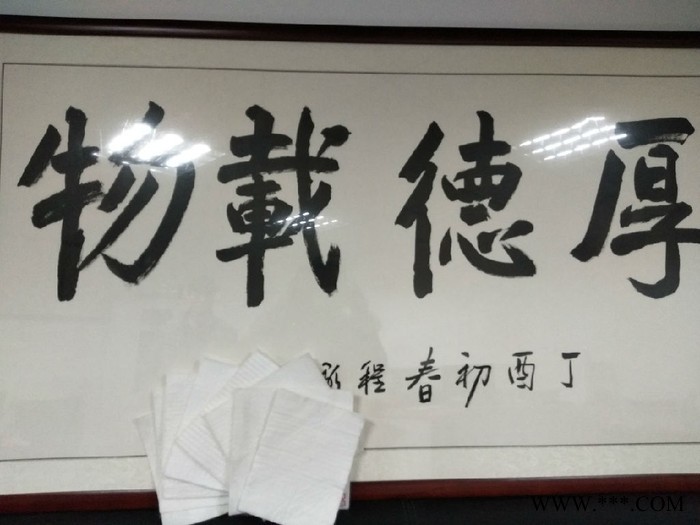 厚德載物
丁酉初春程
WWW.***.COM